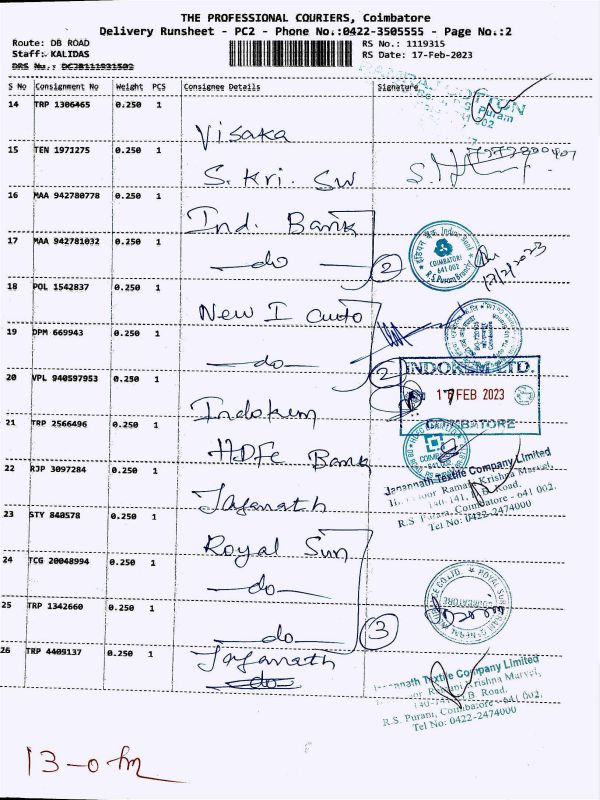 THE PROFESSIONAL COURIERS, Coimbatore
Delivery Runsheet - PC2 - Phone No.:0422-3505555 - Page No.:2
Route: DB ROAD
RS No.: 1119315
Staff: KALIDAS
RS Date: 17-Feb-2023
DRS No.: DCJB111931502
S No Consignment No Weight PCS Consignee Details Signature
14 TRP 1306465 0.250 1 Visaka
R.S Puram
15 TEN 1971275 0.250 1 S. Kri. Sw
16 MAA 942780778 0.250 1 Ind. Bank
17 MAA 942781032 0.250 1 —do— 2
Indian Bank
COIMBATORE
641 002
R.S. Puram Branch
17/2/2023
18 POL 1542837 0.250 1 New I Auto
19 DPM 669943 0.250 1 —do— 2
20 VPL 940597953 0.250 1 Indokem
INDOKEM LTD.
17 FEB 2023
COIMBATORE
21 TRP 2566496 0.250 1 HDFC Bank
22 RJP 3097284 0.250 1 Jaganath
Jagannath Textile Company Limited
Krishna Marvel,
D.B. Road.
R.S. Puram, Coimbatore - 641 002.
Tel No: 0422-2474000
23 STY 840578 0.250 1 Royal Sun
24 TCG 20048994 0.250 1 —do—
25 TRP 1342660 0.250 1 —do— 3
26 TRP 4409137 0.250 1 Jaganath
do
Textile Company Limited
Krishna Marvel,
D.B. Road.
R.S. Puram, Coimbatore - 641 002.
Tel No: 0422-2474000